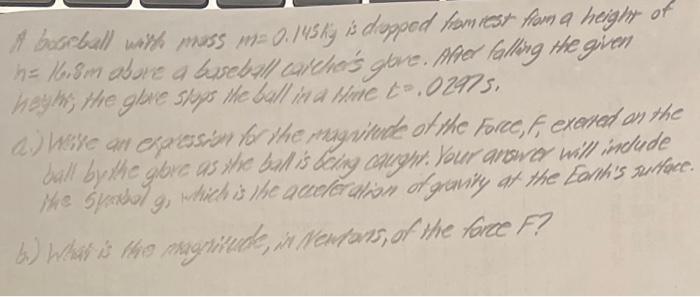 A baseball with mass m=0.145kg is dropped from rest from a height of
h= 16.8m above a baseball catcher's glove. After falling the given
height, the glove stops the ball in a time t=.0297s.
a.) Write an expression for the magnitude of the Force, F, exerted on the
ball by the glove as the ball is being caught. Your answer will include
the symbol g, which is the acceleration of gravity at the Earth's surface.
b.) What is the magnitude, in Newtons, of the force F?